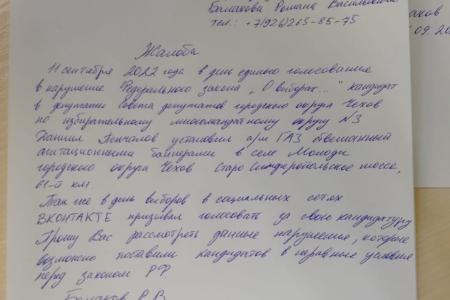 Романа Васильевича
тел.: +7(926)265-85-75
09.20
Жалоба
11 сентября 2022 года в день единого голосования
в нарушение Федерального закона „О выборах..." кандидат
в депутаты Совета депутатов городского округа Чехов
по избирательному многомандатному округу №3
установил а/м ГАЗ обвешанный
агитационными баннерами в селе Молоди
городского округа Чехов Старо Симферопольское шоссе,
61-й км
Так же в день выборов в социальных сетях
ВКОНТАКТЕ призывал голосовать за свою кандидатуру
Прошу Вас рассмотреть данные нарушения, которые
возможно поставили кандидатов в неравные условия
перед законом РФ.
Р.В.